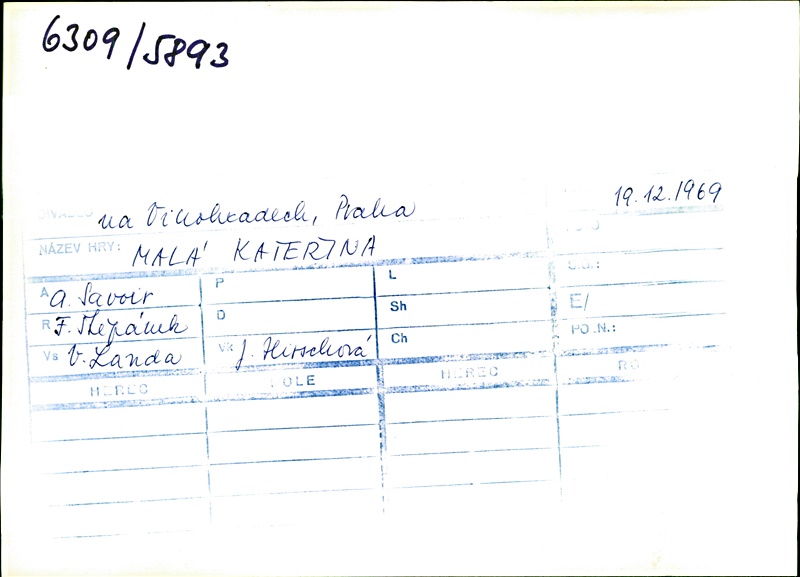 6309/5893
DIVADLO na Vinohradech, Praha 19.12.1969
NÁZEV HRY: MALÁ KATEŘINA
A A. Savoir P L
R F. Štěpánek D Sh E/
Vs V. Landa Vk J. Hirschová Ch PO.N.:
HEREC ROLE HEREC RO